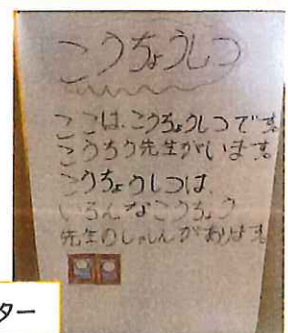 こうちょうしつ
ここは、こうちょうしつです。
こうちょう先生がいます。
こうちょうしつは、
いろんなこうちょう
先生のしゃしんがあります。
ター